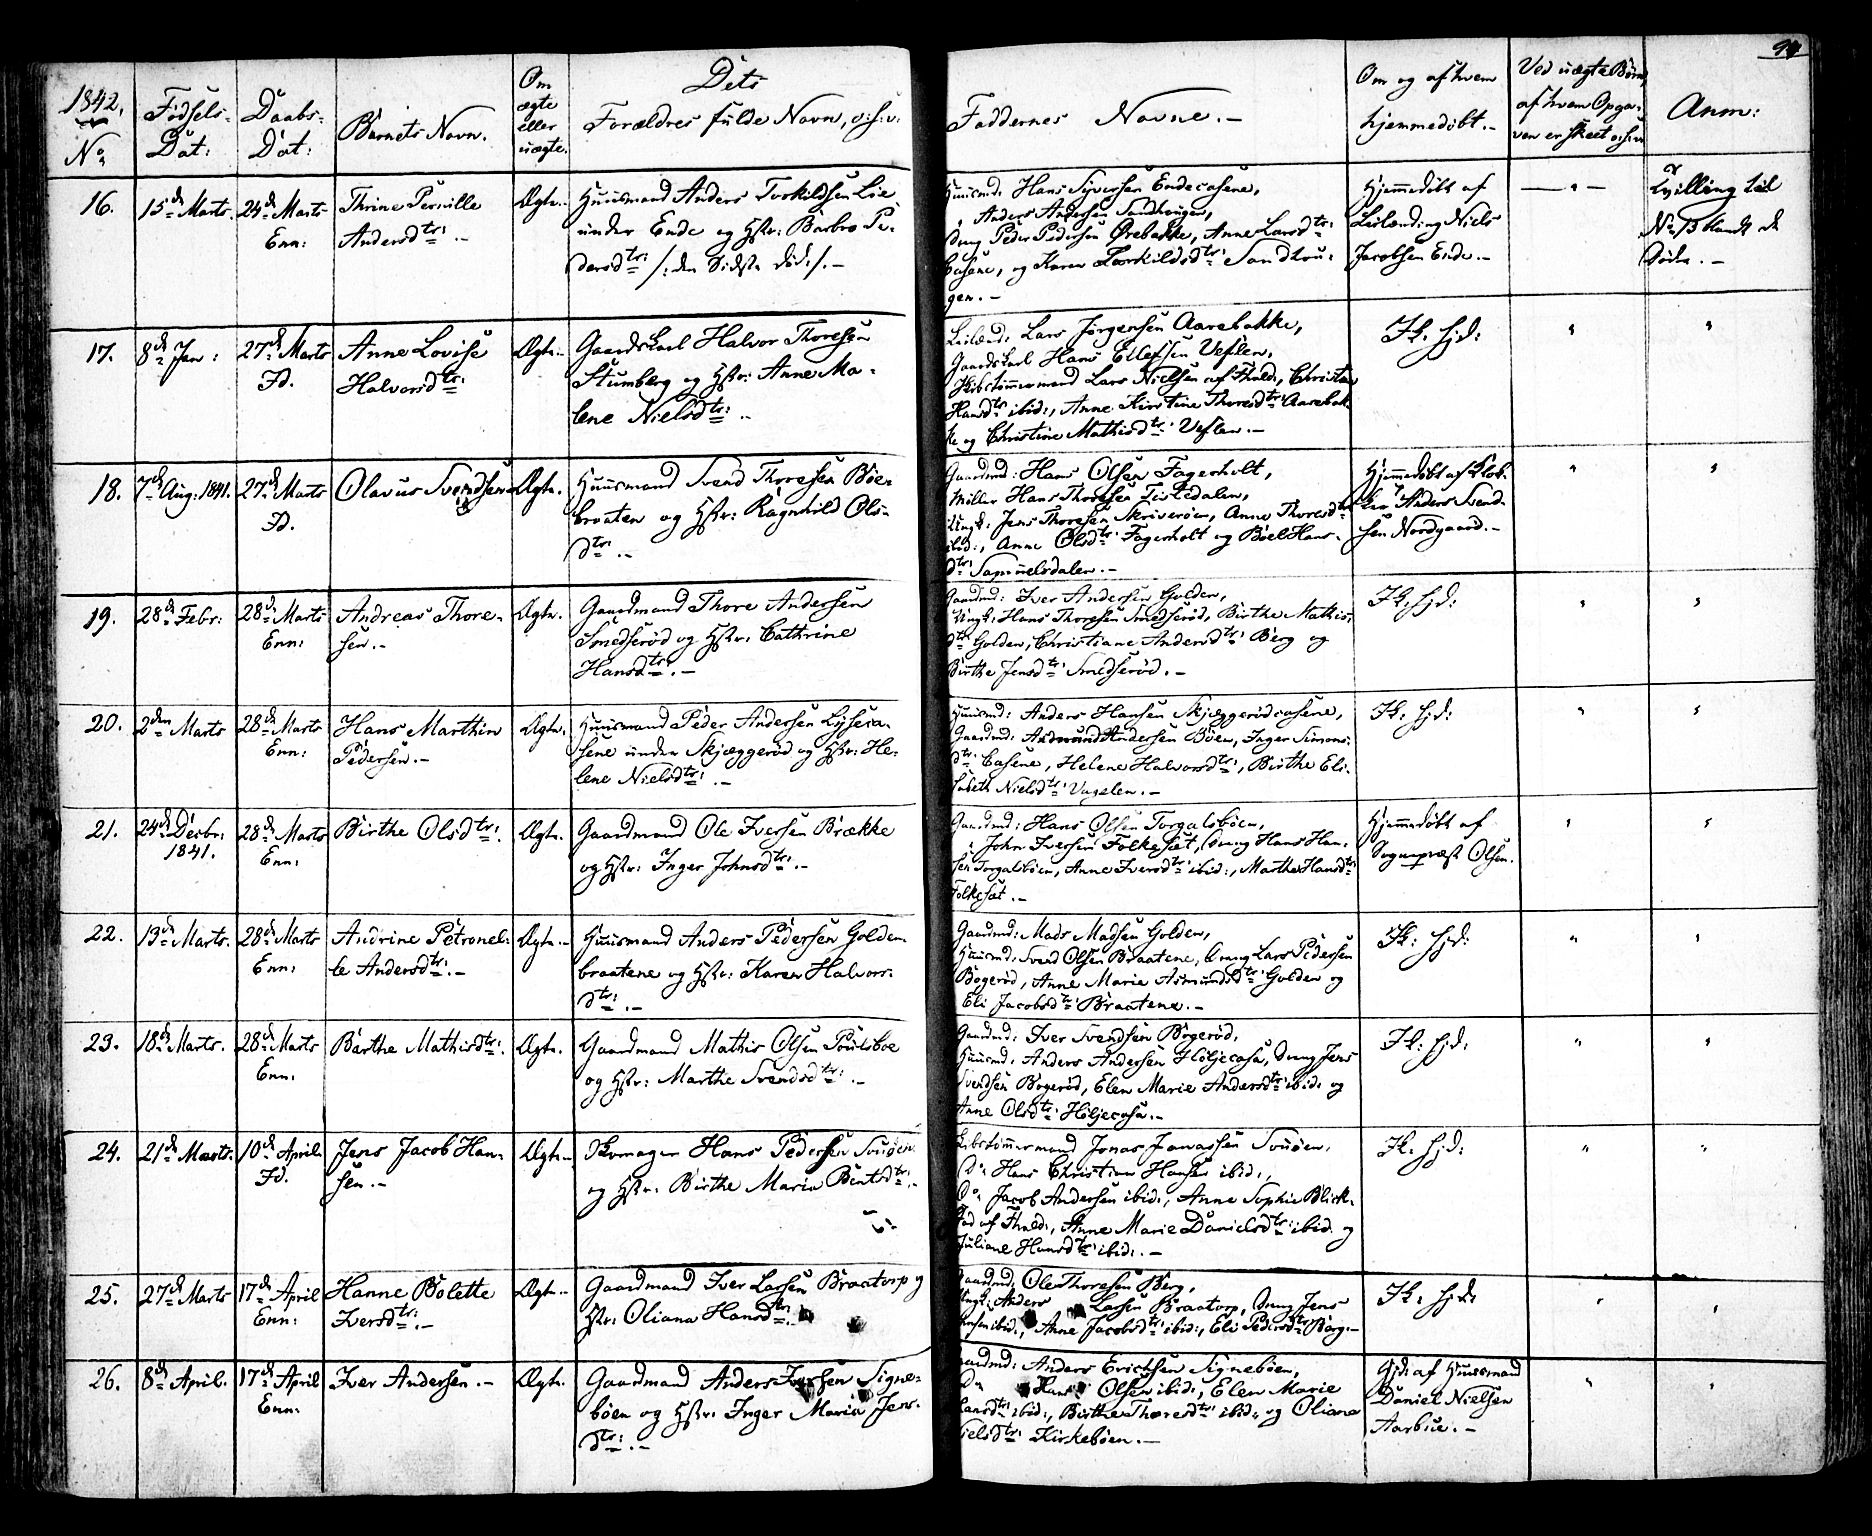 94
1842.
No
Fødsels-
Dat:
Daabs-
Dat:
Barnets Navn.
Om
ægte
eller
uægte.
Dets
Forældres fulde Navn, o: s: v:
Faddernes Navne.-
Om og af hvem
hjemmedøbt.-
Ved uægte Børn,
af hvem Opga-
ven er skeet o: s: v:
Anm:
16.
15de Marts.
24de Marts
Enn:
Thrine Pernille
Andersdtr: .-
Ægte.
Huusmand Anders Torkildsen Lie
under Ende og Hstr: Barbro Pe-
dersdtr: /: den Sidste død :/.-
Huusmd: Hans Syversen Endecasene,
" Anders Andersen Sandhougen,
Ung Peder Pedersen Ørebakke, Anne Larsdtr:
Casene, og Karen Torkildsdtr: Sandhou-
gen.-
Hjemmedøbt af
Leilænding Niels
Jacobsen Ende.-
— " —
Tvilling til
No 13 blandt de
Døde.-
17.
8de Jan:
27de Marts
Fd.
Anne Lovise
Halvorsdtr:
Ægte.
Gaardskarl Halvor Thoresen
Stumberg og Hstr: Anne Ma-
lene Nielsdtr: .-
Leilænd: Lars Jørgensen Aarebakke,
Gaardskarl Hans Ellefsen Veflen,
Skibstømmermand Lars Nielsen af Fhald:, Christen
Hansdtr ibid:, Anne Kirstine Thoresdtr: Aarebak-
ke og Christine Mathisdtr: Veflen.-
Ik: Hjd:
"
"
18.
7de Aug: 1841.
27de Marts
Fd.
Olavus Svendsen
Ægte.
Huusmand Svend Thoresen Bøe-
braaten og Hstr: Ragnhild Ols-
dtr: .-
Gaardmd: Hans Olsen Fagerholt,
Møller Hans Thoresen Tistedalen,
Ungk: Jens Thoresen Skriverøen, Anne Thoresdtr
ibid:, Anne Olsdtr: Fagerholt og Bøel Hans-
dtr: Sammelsdalen.-
Hjemmedøbt af Klok-
ker Anders Svend-
sen Nordgaard.-
"
"
19.
28de Febr:
28de Marts
Enn:
Andreas Thore-
sen.-
Ægte.
Gaardmand Thore Andersen
Smedserød og Hstr: Cathrine
Hansdtr: .-
Gaardmd: Iver Andersen Golden,
Ungk: Hans Thoresen Smedserød, Birthe Mathis-
dtr Golden, Christiane Andersdtr: Berg og
Birthe Jensdtr: Smedserød.-
Ik: Hjd:
"
"
20.
2den Marts
28de Marts
Enn:
Hans Marthin
Pedersen.-
Ægte.
Huusmand Peder Andersen Lyseca-
sene under Skjæggerød og Hstr: He-
lene Nielsdtr: .-
Huusmd: Anders Hansen Skjæggerødcasene,
Gaardmd: Asmund Andersen Bøen, Inger Simons-
dtr: Casene, Helene Halvorsdtr:, Birthe Eli-
sabeth Nielsdtr: Vagelen.-
Ik: Hjd:
"
"
21.
24de Decbr:
1841.
28de Marts
Enn:
Birthe Olsdtr:
Ægte.
Gaardmand Ole Iversen Brække
og Hstr: Inger Johnsdtr: .-
Gaardmd: Hans Olsen Torgalsbøen,
" John Iversen Folkesæt, Ung Hans Han-
sen Torgalsbøen, Anne Iversdtr: ibid:, Marthe Hansdtr:
Folkesæt.-
Hjemmedøbt af
Sognepræst Olsen.
"
"
22.
13de Marts.
28de Marts
Enn:
Andrine Petronel-
le Andersdtr: .-
Ægte.
Huusmand Anders Pedersen Golden-
braatene og Hstr: Karen Halvors-
dtr: .-
Gaardmd: Mads Madsen Golden,
Huusmd: Svend Olsen Braatene, Ung Lars Pedersen
Bøgerød, Anne Marie Asmundsdtr: Golden og
Eli Jacobsdtr: Braatene.-
Ik: Hjd:
"
"
23.
18de Marts.
28de Marts
Enn:
Birthe Mathisdtr:
Ægte.
Gaardmand Mathis Olsen Poulsboe
og Hstr: Marthe Svendsdtr: .-
Gaardmd: Iver Svendsen Bøgerød,
Huusmd: Anders Andersen Høljecasa, Ung Jens
Svendsen Bøgerød, Elen Marie Andersdtr: ibid: og
Anne Olsdtr: Høljecasa.-
Ik: Hjd:
"
"
24.
21de Marts.
10de April
Fd.
Jens Jacob Han-
sen.-
Ægte.
Skomager Hans Pedersen Souøen
og Hstr: Birthe Maria Berntsdtr: .-
Skibstømmermand Jonas Jonassen Souøen,
Do: Hans Christian Hansen ibid:,
Do: Jacob Andersen ibid:, Anne Sophie Blick-
stad af Fhald:, Anne Marie Danielsdtr: ibid: og
Juliane Hansdtr: ibid: .-
Ik: Hjd:
"
"
25.
27de Marts
17de April
Enn:
Hanne Bolette
Iversdtr: .-
Ægte.
Gaardmand Iver Larsen Braatorp og
Hstr: Oliana Hansdtr: .-
Gaardmd: Ole Thoresen Berg,
Ungk: Anders Larsen Braatorp, Ung Jens
ibid:, Anne Jacobsdtr: ibid:, Eli Pedersdtr: Berg.-
Ik: Hjd:
"
"
26.
8de April.
17de April
Enn:
Iver Andersen.-
Ægte.
Gaardmand Anders Iversen Signe-
bøen og Hstr: Inger Maria Jens-
dtr: .-
Gaardmd: Anders Erichsen Signebøen,
Do: Hans Olsen ibid:, Elen Marie
Hansdtr: ibid:, Birthe Thoresdtr: ibid: og Oliana
Nielsdtr: Kirkebøen.-
Hjd: af Huusmand
Daniel Nielsen
Aarbue.-
"
"